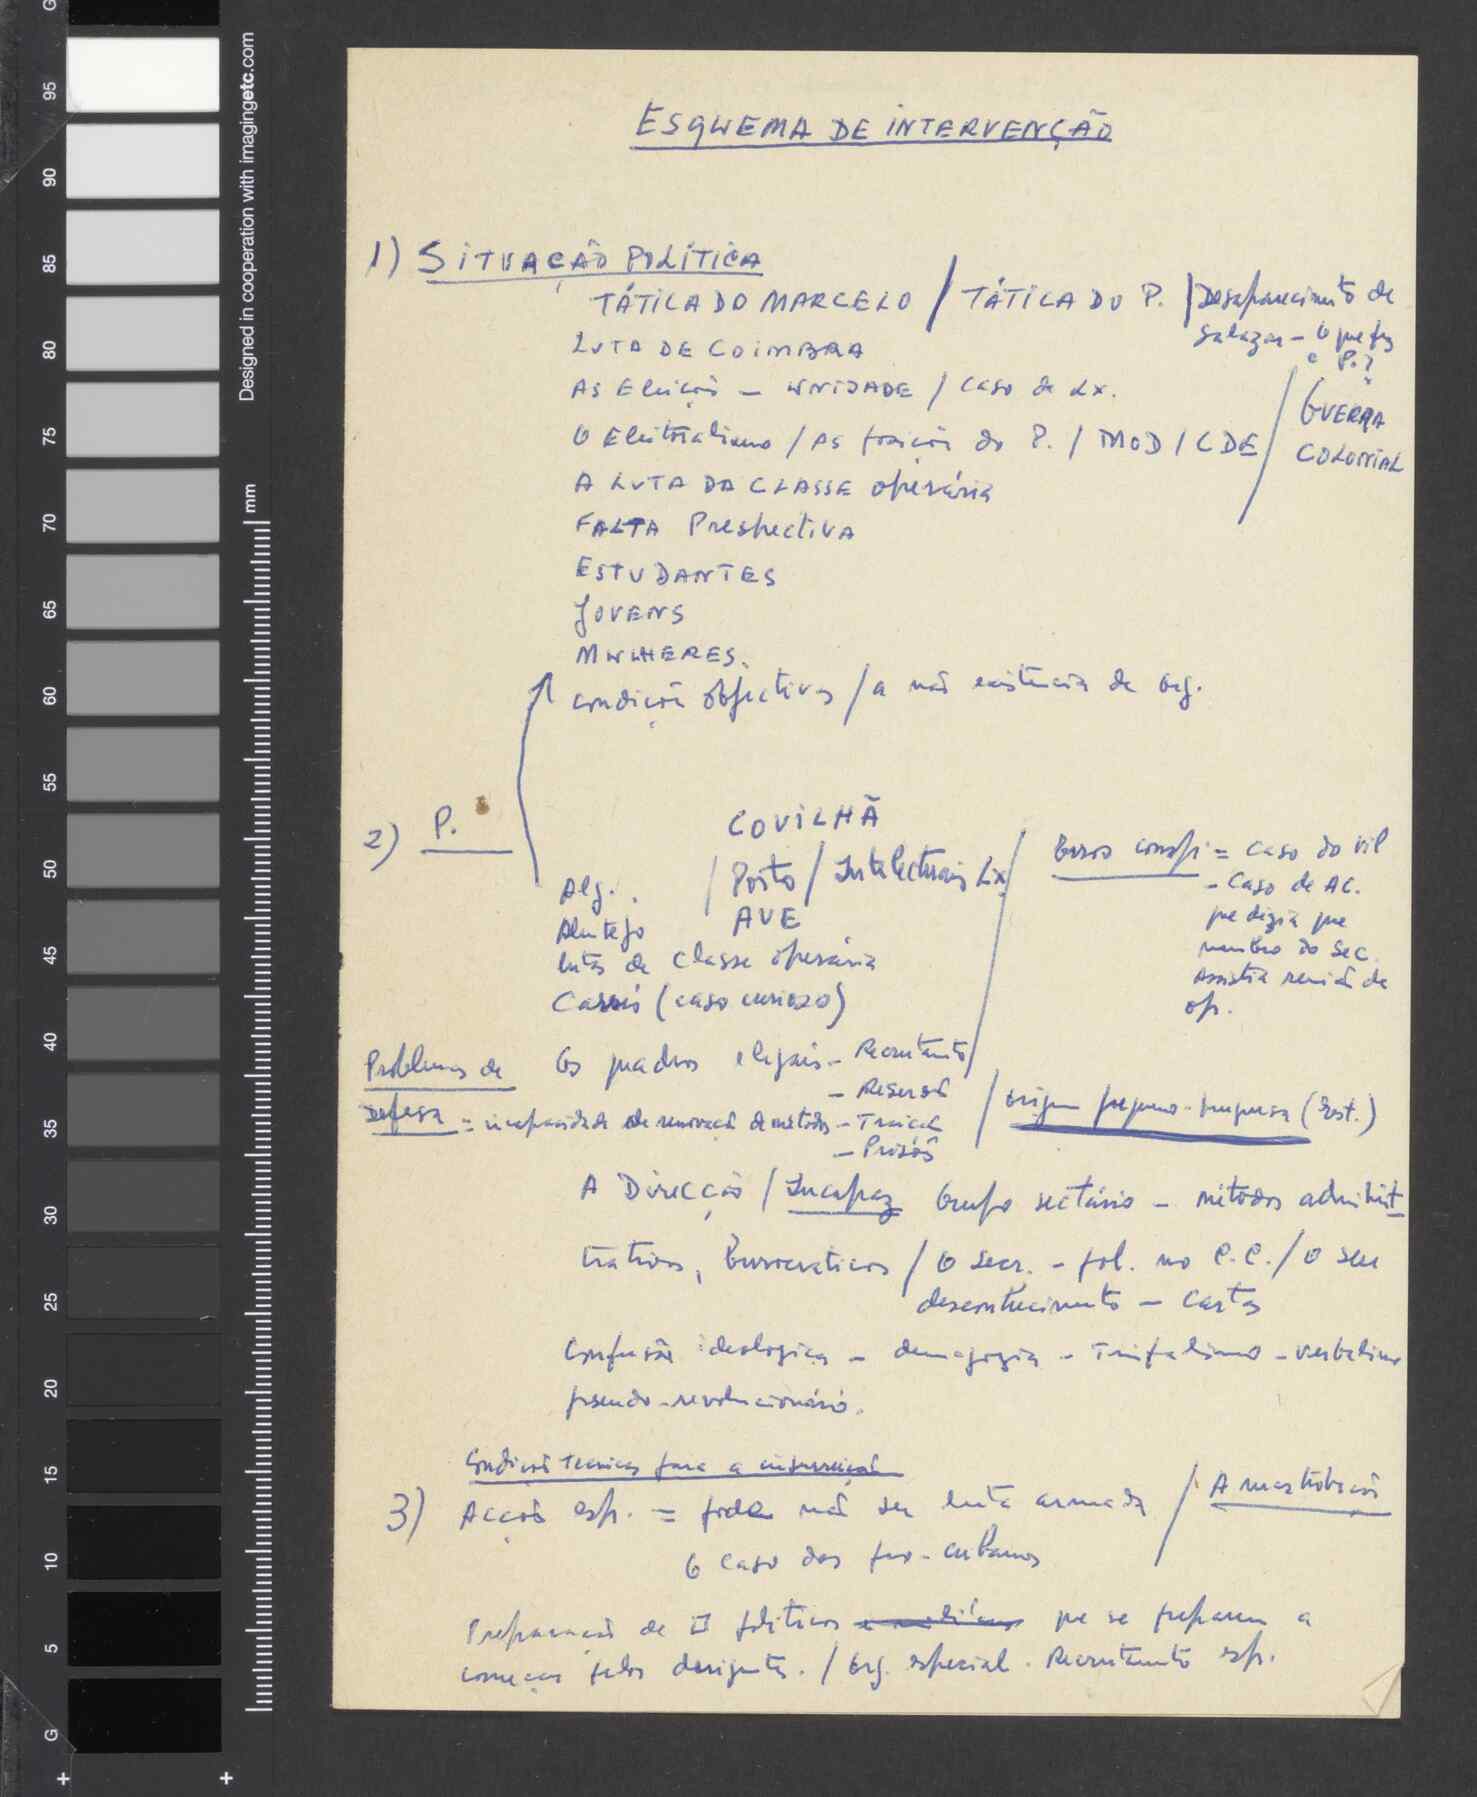 ESQUEMA DE INTERVENÇÃO
1) SITUAÇÃO POLÍTICA
TÁTICA DO MARCELO / TÁTICA DO P. / Desaparecimento de
Salazar - O que fez
o P.?
LUTA DE COIMBRA
AS Eleições - UNIDADE / Caso de Lx.
O Eleitoralismo / As posições do P. / MOD / CDE / GUERRA
COLONIAL
A LUTA DA CLASSE operária
FALTA PRespectiva
ESTUDANTES
JOVENS
MULHERES.
condições objectivas / a não existência de org.
2) P.
COVILHÃ
Alg. / Porto / Intelectuais Lx /
Alentejo AVE
lutas da classe operária
(caso curioso)
= caso do Vil
- Caso de AC.
que dizia que
membro do Sec.
Assistia reunião de
op.
Problemas de
Defesa = incapacidade de renovação de métodos
Os quadros ilegais - Recrutamento
- Deserção
- Traição
- Prisões
/ origem pequeno-burguesa (Est.)
A Direcção / Incapaz Grupo sectário - métodos adminis-
trativos, burocráticos / O Secr. - pol. no C.C. / O seu
desconhecimento - Cartas
Confusão ideológica - demagogia - - verbalismo
pseudo-revolucionário.
Condições técnicas para a insurreição
3) Acções esp. = pode não ser luta armada /
O caso dos pro-cubanos
Preparação de políticos que se preparem a
começar pelos dirigentes. / Org. especial. Recrutamento esp.
Designed in cooperation with imagingetc.com
mm
G
95
90
85
80
75
70
65
60
55
50
45
40
35
30
25
20
15
10
5
G